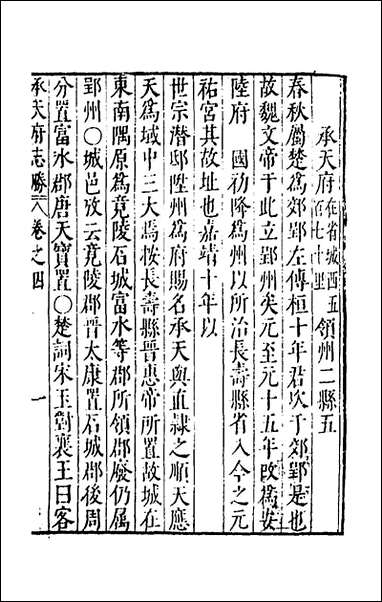 承天府在省城西五百七十里領州二縣五
春秋屬楚爲郊郢左傳桓十年君次于郊郢是也
故魏文帝于此立郢州矣元至元十五年改爲安
陸府　國初降爲州以所治長壽縣省入今之元
祐宮其故址也嘉靖十年以
世宗潛邸陞州爲府賜名承天與直隸之順天應
天爲域中三大焉按長壽縣晉惠帝所置故城在
東南隅原爲竟陵石城富水等郡所領郡廢仍属
郢州〇城邑攷云竟陵郡晉太康置石城郡後周
分置富水郡唐天寶置〇楚詞宋玉對襄王曰客
承天府志勝　卷之四　一